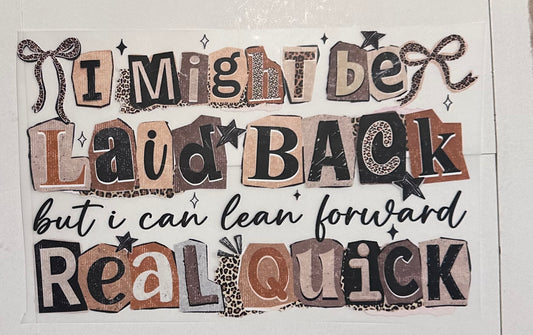 I MigHT be
LaiD BACk
but i can lean forward
ReaL QUiCK